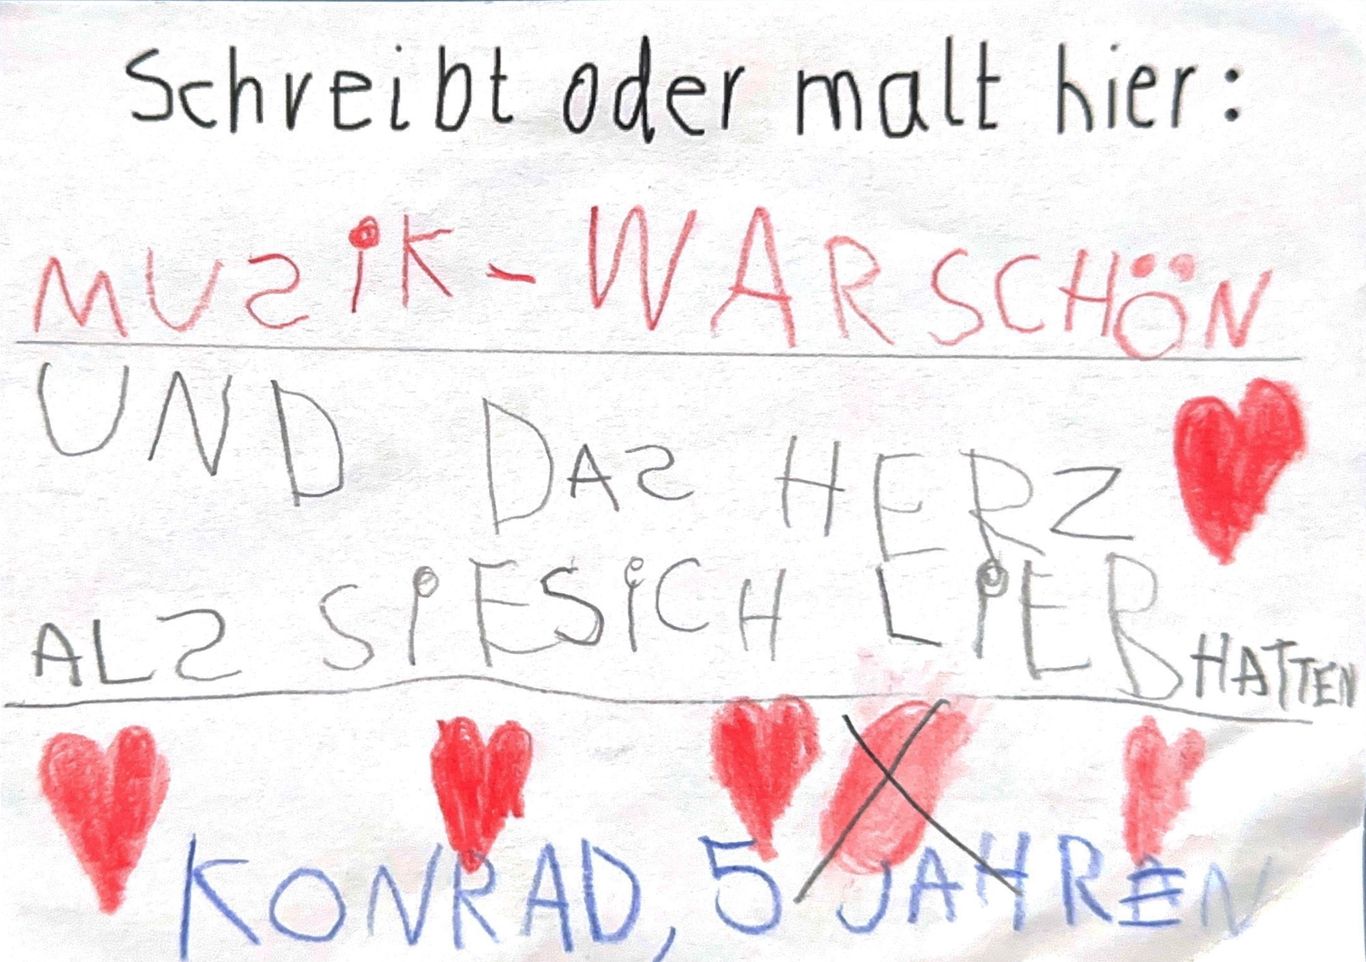 Schreibt oder malt hier:
MUSIK-WARSCHÖN
UND DAS HERZ
ALS SIESICH LIEB HATTEN
KONRAD, 5 JAHREN